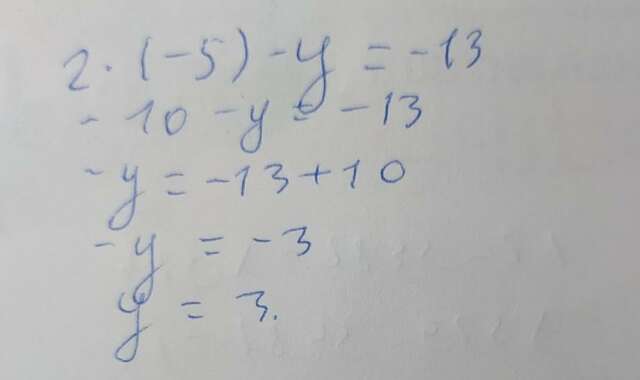 2 · (-5) - y = -13
- 10 - y = - 13
- y = -13 + 10
- y = -3
y = 3.